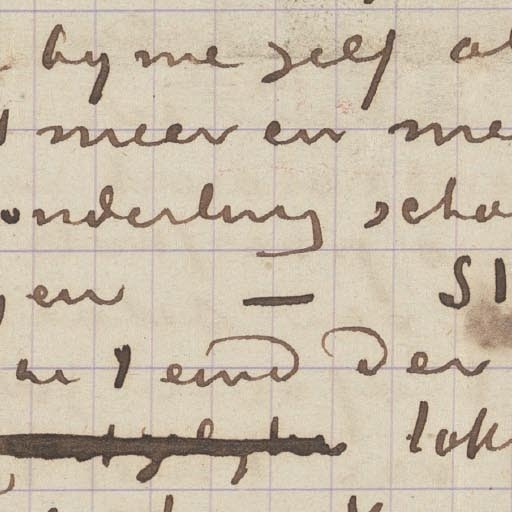 by me zelf al
meer en me
onderling scha
en — SI
au 't eind der
lok